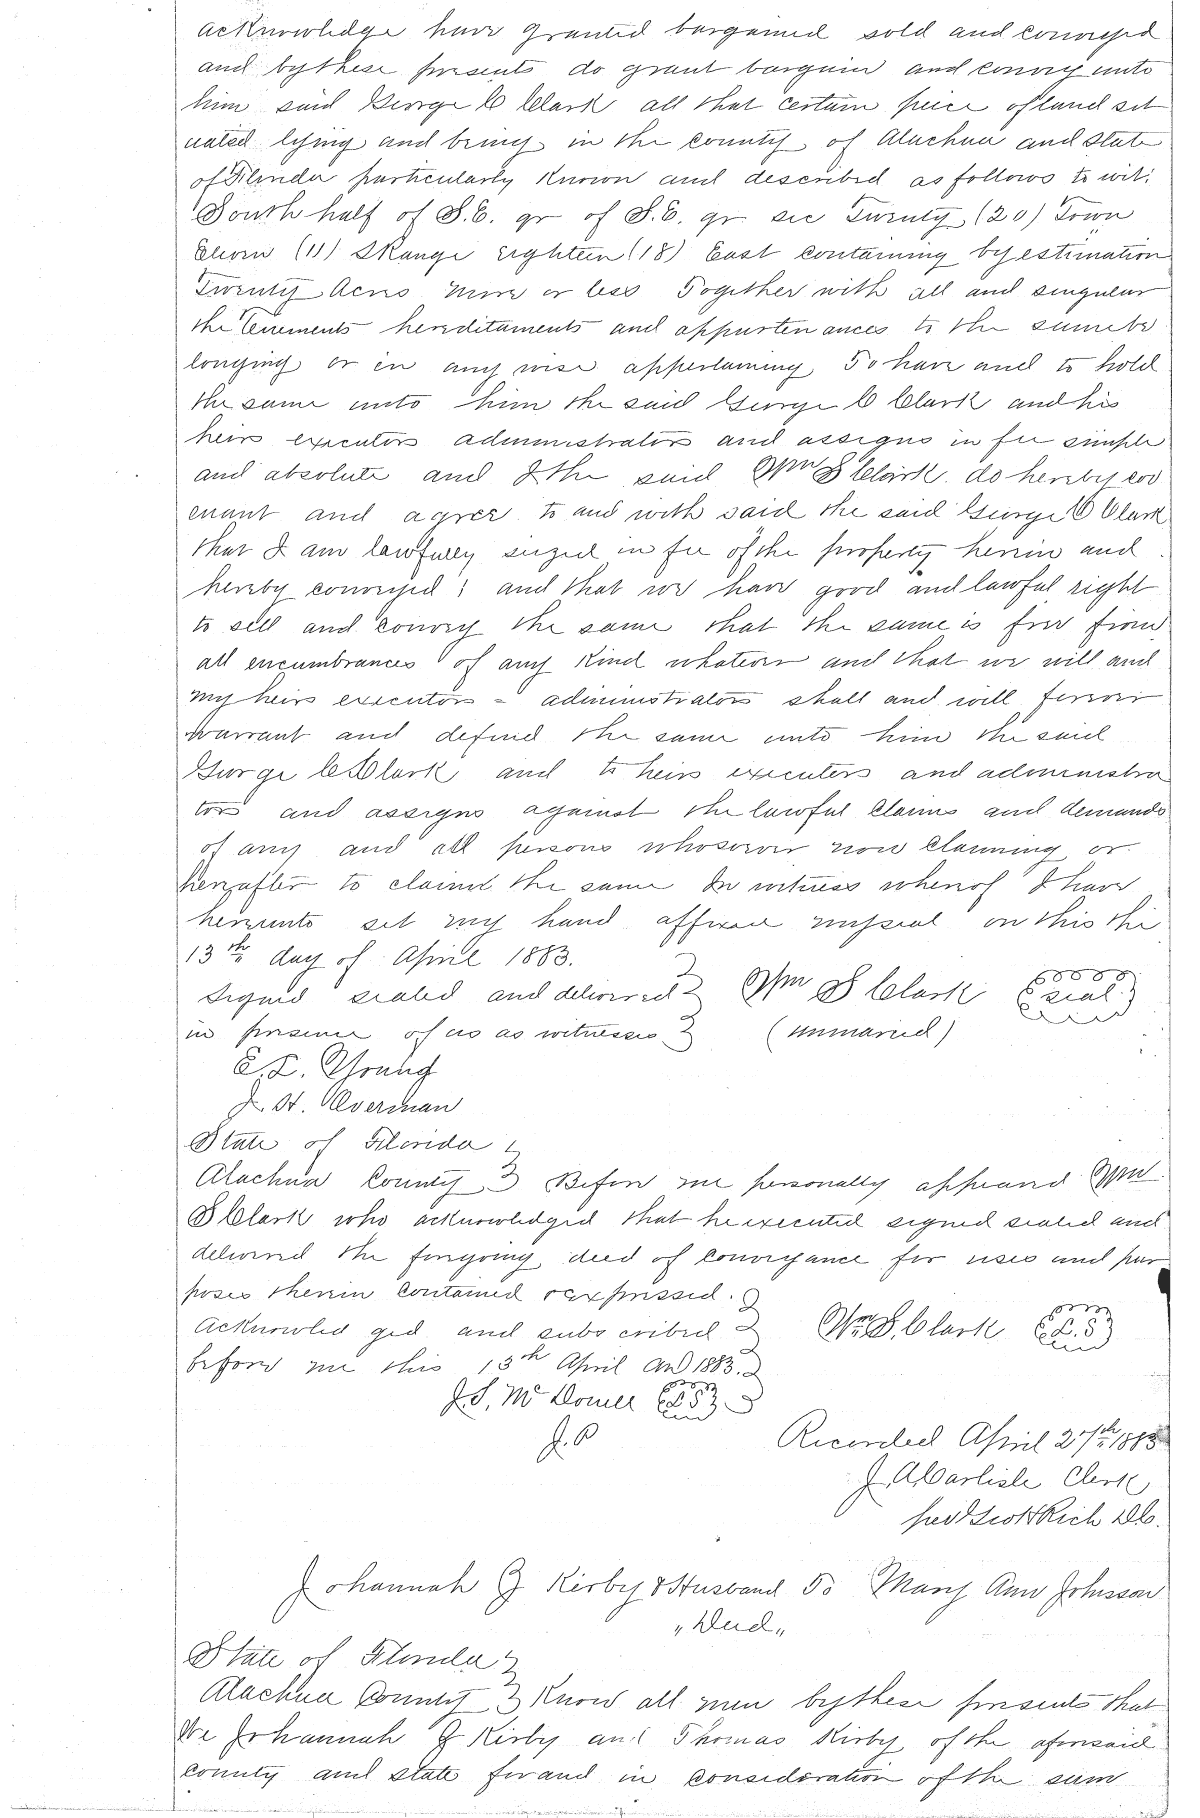 acknowledge have granted bargained sold and conveyed
and by these presents do grant bargain and convey unto
him said George C Clark all that certain peice of land sit
uated lying and being in the county of Alachua and state
of Florida particularly known and described as follows to wit:
South half of S.E. qr of S.E. qr sec Twenty (20) Town
Eleven (11) S Range eighteen (18) East containing by estimation
Twenty Acres more or less Together with all and singular
the Tenements hereditaments and appurtenances to the same be
longing or in any wise appertaining To have and to hold
the same unto him the said George C Clark and his
heirs executors administrators and assigns in fee simple
and absolute and I the said Wm S Clark do hereby cov
enant and agree to and with said the said George C Clark
that I am lawfully seized in fee of the property herein and
hereby conveyed; and that we have good and lawful right
to sell and convey the same that the same is free from
all encumbrances of any kind whatever and that we will and
my heirs executors = administrators shall and will forever
warrant and defend the same unto him the said
George C Clark and to heirs executers and administra
tors and assigns against the lawful claims and demands
of any and all persons whosoever now claiming or
hereafter to claim the same In witness whereof I have
hereunto set my hand affixed my seal on this the
13th day of April 1883.
Signed sealed and delivered } Wm S Clark (seal)
in presence of us as witnesses } (unmaried)
E. L. Young
J. H. Overman
State of Florida }
Alachua County } Before me personally appeared Wm
S Clark who acknowledged that he executed signed sealed and
delivered the foregoing deed of conveyance for uses and pur
poses therein contained & expressed. }
Acknowled ged and subscribed } Wm S. Clark (L.S)
before me this 13th April AD 1883. }
J. S. McDowell (LS) }
J.P
Recorded April 27th 1883
J. A Carlisle Clerk
per Scott Rich D.C.
Johannah G Kirby & Husband To Mary Ann Johnson
"Deed"
State of Florida }
Alachua County } Know all men by these presents that
We Johannah G Kirby and Thomas Kirby of the aforesaid
county and state for and in consideration of the sum